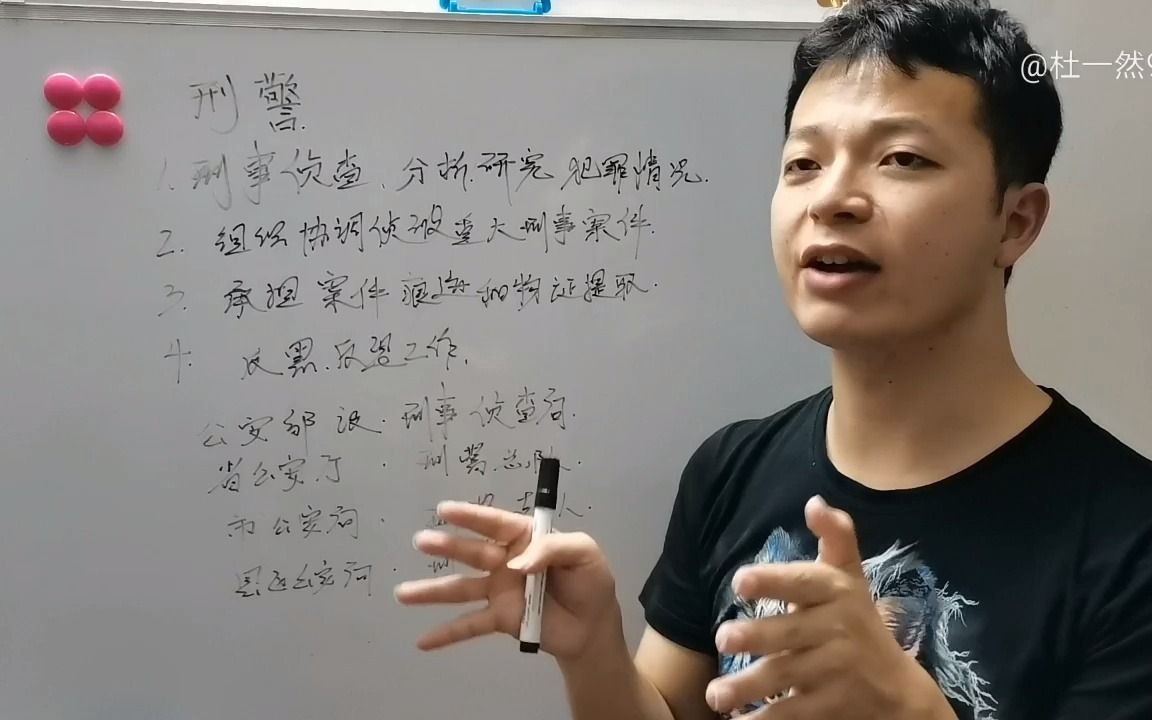 @杜一然9
刑警
1.刑事侦查、分析研究犯罪情况.
2.组织协调侦破重大刑事案件.
3.承担案件痕迹和物证提取.
4.反黑.反恐工作.
公安部设.刑事侦查局.
省公安厅.刑警总队.
市公安局.
县区公安局.